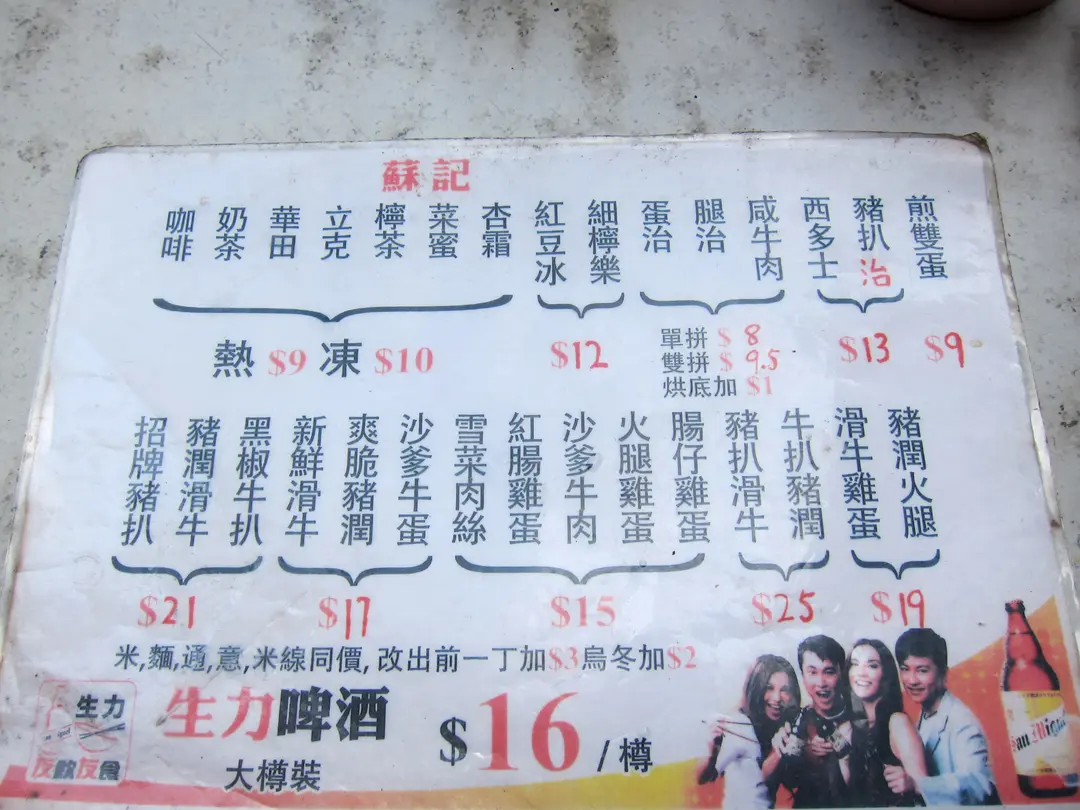 蘇記
咖啡
奶茶
華田
立克
檸茶
菜蜜
杏霜
紅豆冰
細檸樂
蛋治
腿治
咸牛肉
西多士
豬扒治
煎雙蛋
熱 $9 凍 $10
$12
單拼 $8
雙拼 $9.5
烘底加 $1
$13
$9
招牌豬扒
豬潤滑牛
黑椒牛扒
新鮮滑牛
爽脆豬潤
沙爹牛蛋
雪菜肉絲
紅腸雞蛋
沙爹牛肉
火腿雞蛋
腸仔雞蛋
豬扒滑牛
牛扒豬潤
滑牛雞蛋
豬潤火腿
$21
$17
$15
$25
$19
米,麵,通,意,米線同價, 改出前一丁加$3烏冬加$2
生力
友飲友食
生力啤酒
大樽裝
$16/樽
San Miguel